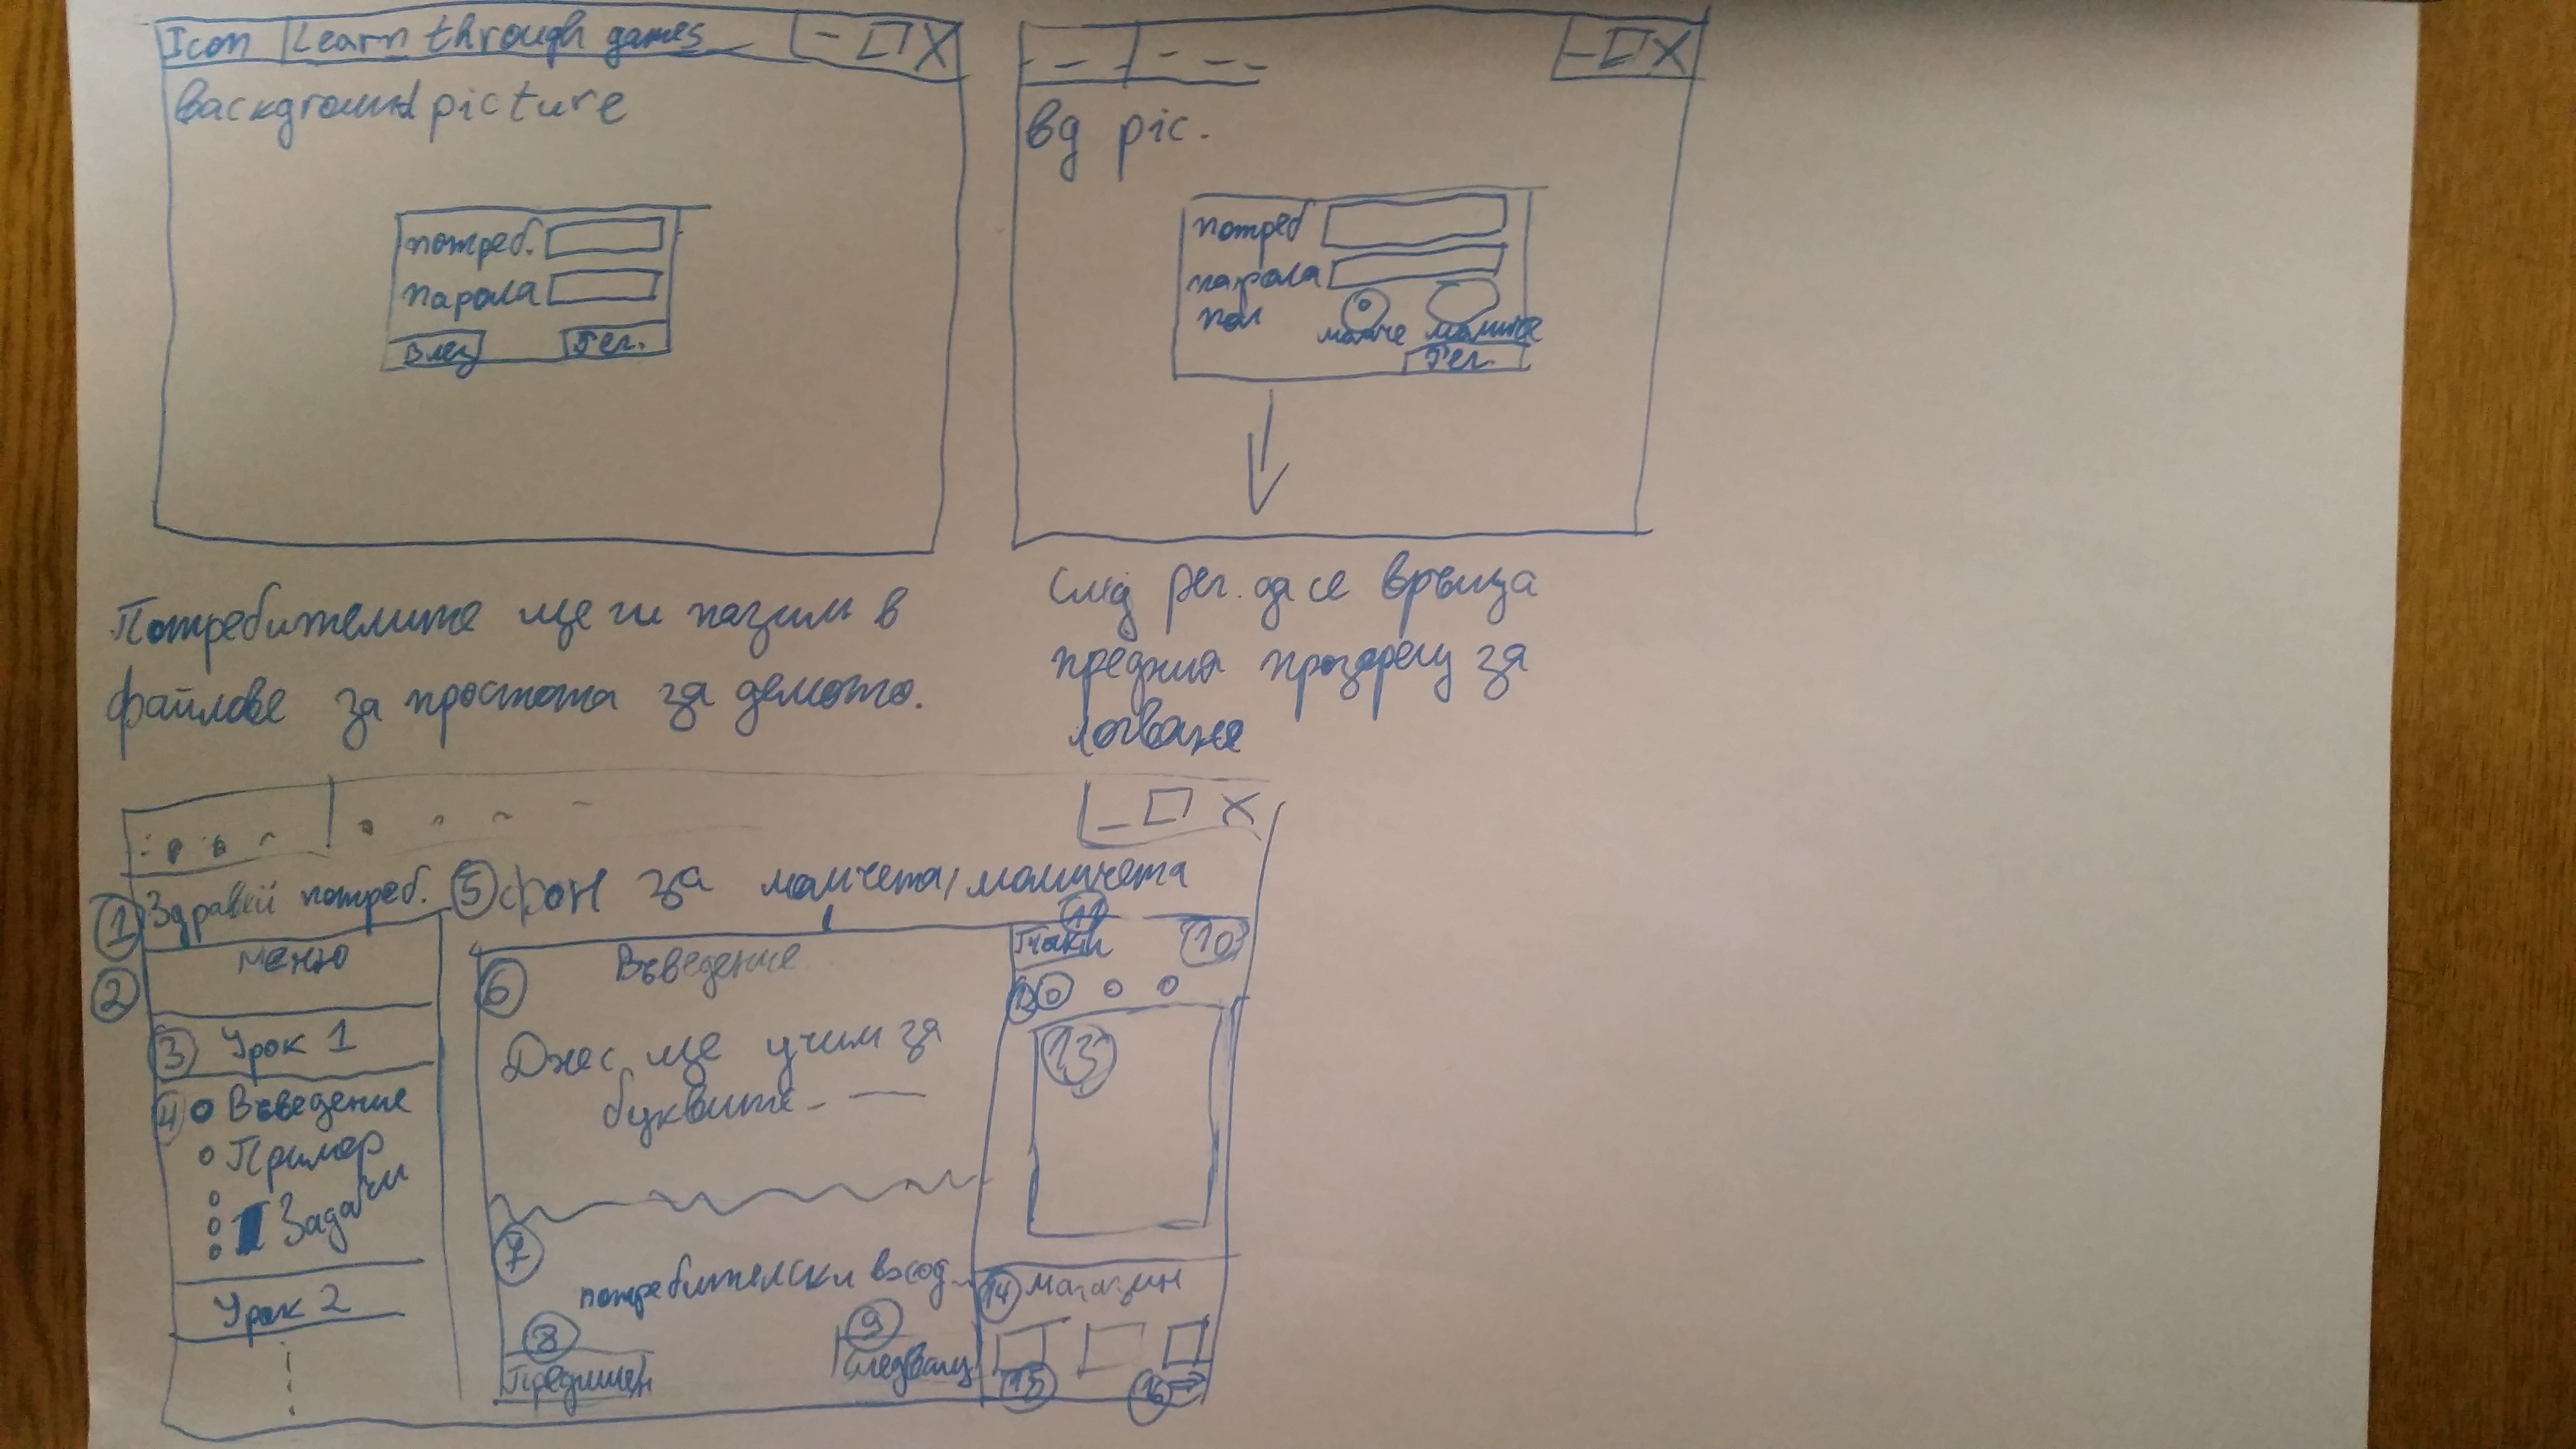 Icon Learn through games
background picture
потреб.
парола
Влез Рег.
bg pic.
потреб
парола
пол
момче момиче
Рег.
Потребителите ще ги пазим в
файлове за простота за демото.
След рег. да се връща
предния прозорец за
логване
1 Здравей потреб. 5 фон за момчета/момичета
2 меню
3 Урок 1
4 Въведение
Пример
Задачи
Урок 2
6 Въведение
Днес ще учим за
буквите
7 потребителски вход
8 Предишен
9 Следващ
11 Точки 10
12
13
14 магазин
15 16